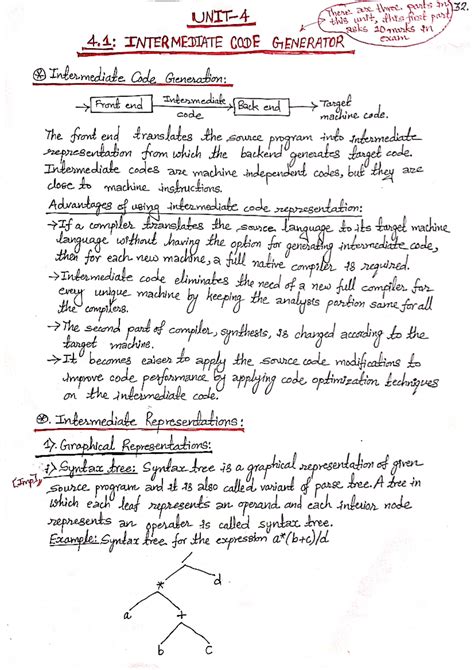 UNIT-4
There are three parts in this unit, this first part asks 10 marks in exam
32.
4.1: INTERMEDIATE CODE GENERATOR
Intermediate Code Generation:
Front end
Intermediate code
Back end
Target machine code.
The front end translates the source program into intermediate
representation from which the backend generates target code.
Intermediate codes are machine independent codes, but they are
close to machine instructions.
Advantages of using intermediate code representation:
→If a compiler translates the source language to its target machine
language without having the option for generating intermediate code,
then for each new machine, a full native compiler is required.
→Intermediate code eliminates the need of a new full compiler for
every unique machine by keeping the analysis portion same for all
the compilers.
→The second part of compiler, synthesis, is changed according to the
target machine.
→It becomes easier to apply the source code modifications to
improve code performance by applying code optimization techniques
on the intermediate code.
Intermediate Representations:
1). Graphical Representations:
i) Syntax tree: Syntax tree is a graphical representation of given
(Imp)
source program and it is also called variant of parse tree. A tree in
which each leaf represents an operand and each interior node
represents an operator is called syntax tree.
Example: Syntax tree for the expression a*(b+c)/d
/
* d
a +
b c